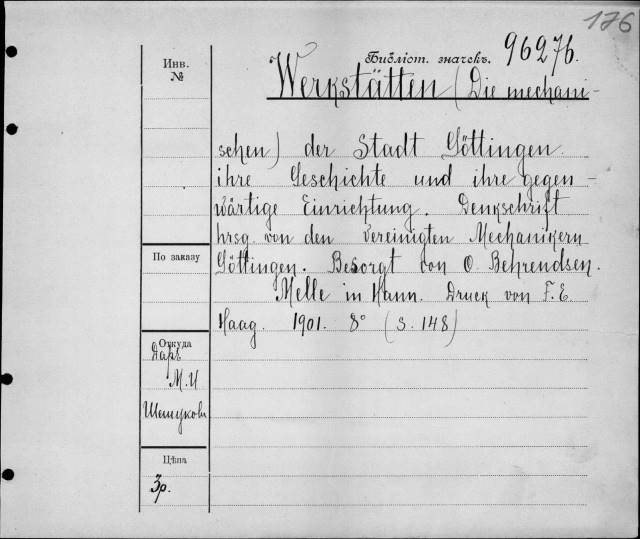 176
Библіот. значекъ. 96276.
Инв.
№
Werkstätten (Die mechani-
schen) der Stadt Göttingen
ihre Geschichte und ihre gegen-
wärtige Einrichtung. Denkschrift
hrsg. von den vereinigten Mechanikern
По заказу
Göttingen. Besorgt von O. Behrendsen.
Melle in Hann. Druck von F. E.
Haag. 1901. 8° (S. 148)
Откуда
Даръ
М. И
Цѣна
3р.